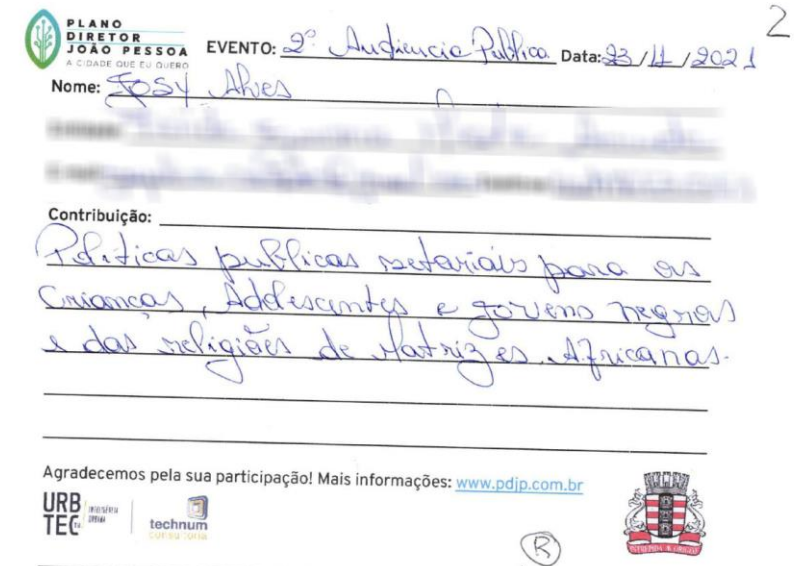 2
PLANO
DIRETOR
JOÃO PESSOA
A CIDADE QUE EU QUERO
EVENTO: 2ª Audiencia Publica Data: 23/11/2021
Nome: Josy Alves
Contribuição:
Politicas publicas setoriais para as
Crianças, Adolescentes e jovens negros
e das religiões de Matrizes Africanas.
Agradecemos pela sua participação! Mais informações: www.pdjp.com.br
URB
TEC
INTELIGÊNCIA
URBANA
technum
consultoria
R
INTREPIDA AB ORIGINE